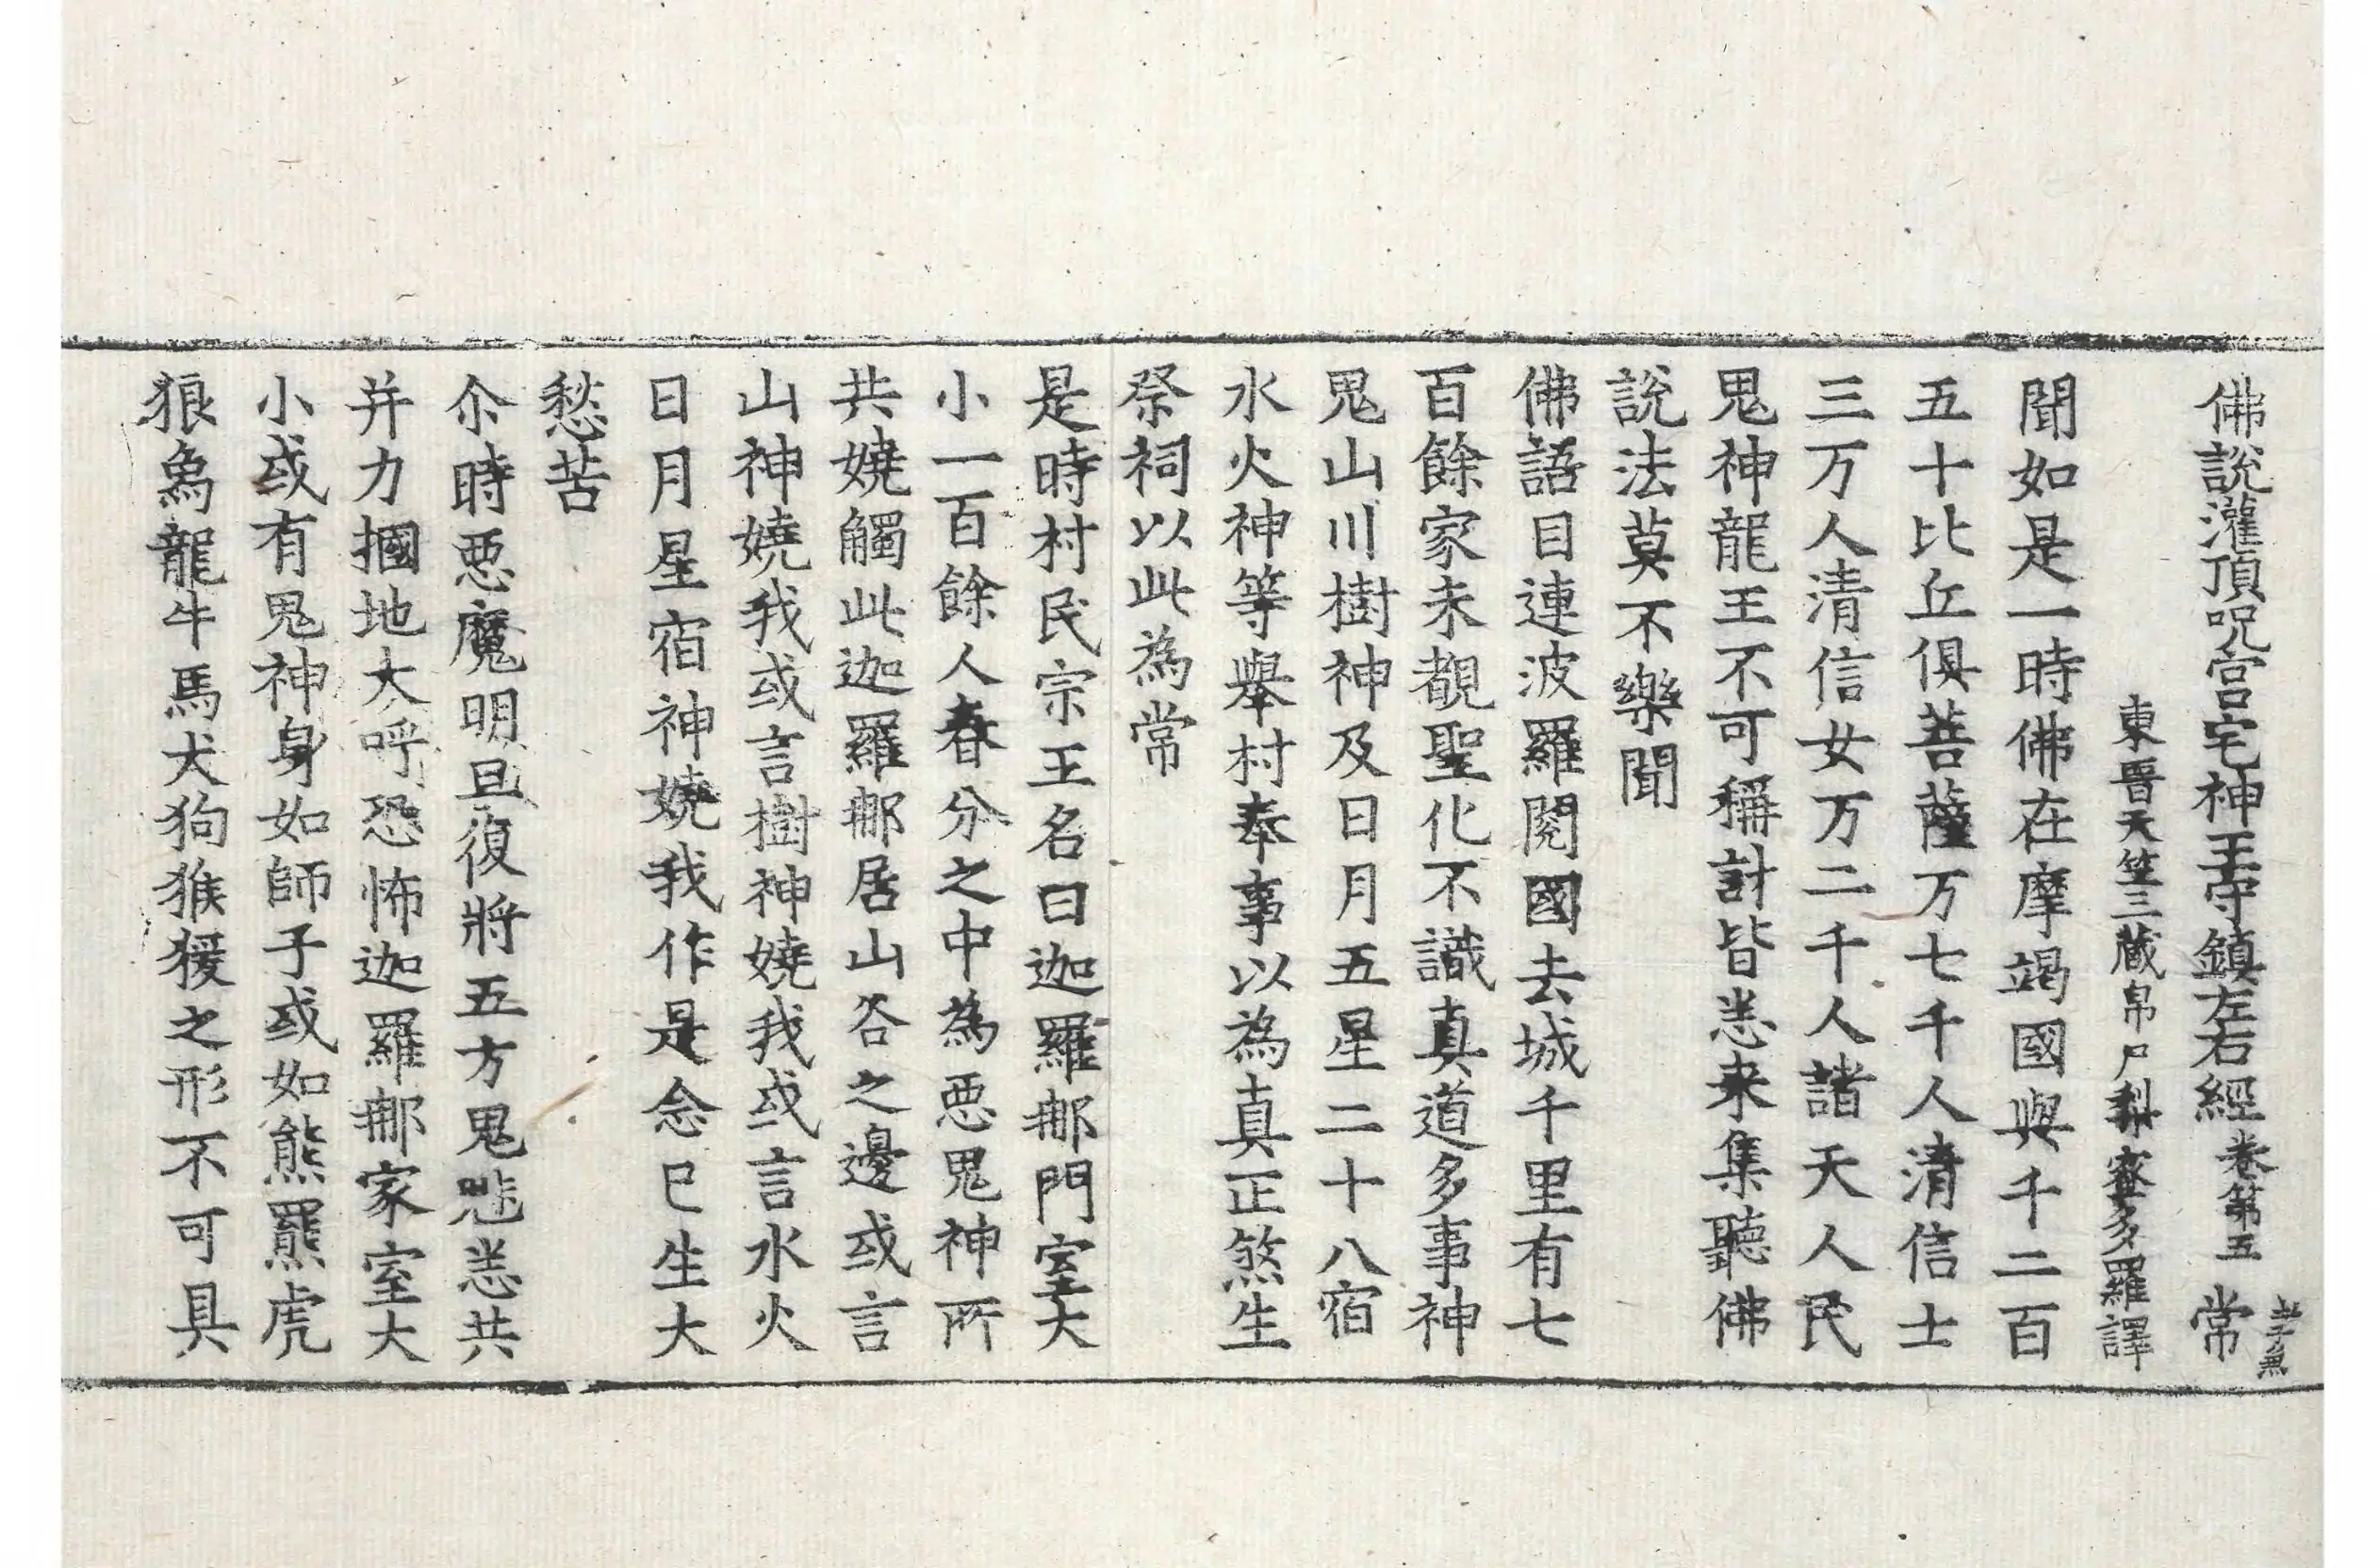 佛說灌頂呪宮宅神王守鎮左右經卷第五 常
東晉天竺三藏帛尸梨蜜多羅譯
聞如是一時佛在摩竭國與千二百
五十比丘俱菩薩万七千人清信士
三万人清信女万二千人諸天人民
鬼神龍王不可稱計皆悉来集聽佛
說法莫不樂聞
佛語目連波羅閱國去城千里有七
百餘家未覩聖化不識真道多事神
鬼山川樹神及日月五星二十八宿
水火神等舉村奉事以為真正煞生
祭祠以此為常
是時村民宗王名曰迦羅那門室大
小一百餘人春分之中為惡鬼神所
共嬈觸此迦羅那居山谷之邊或言
山神嬈我或言樹神嬈我或言水火
日月星宿神嬈我作是念已生大
愁苦
尒時惡魔明旦復將五方鬼魅悉共
并力摑地大呼恐怖迦羅那家室大
小或有鬼神身如師子或如熊羆虎
狼象龍牛馬犬狗猴猨之形不可具